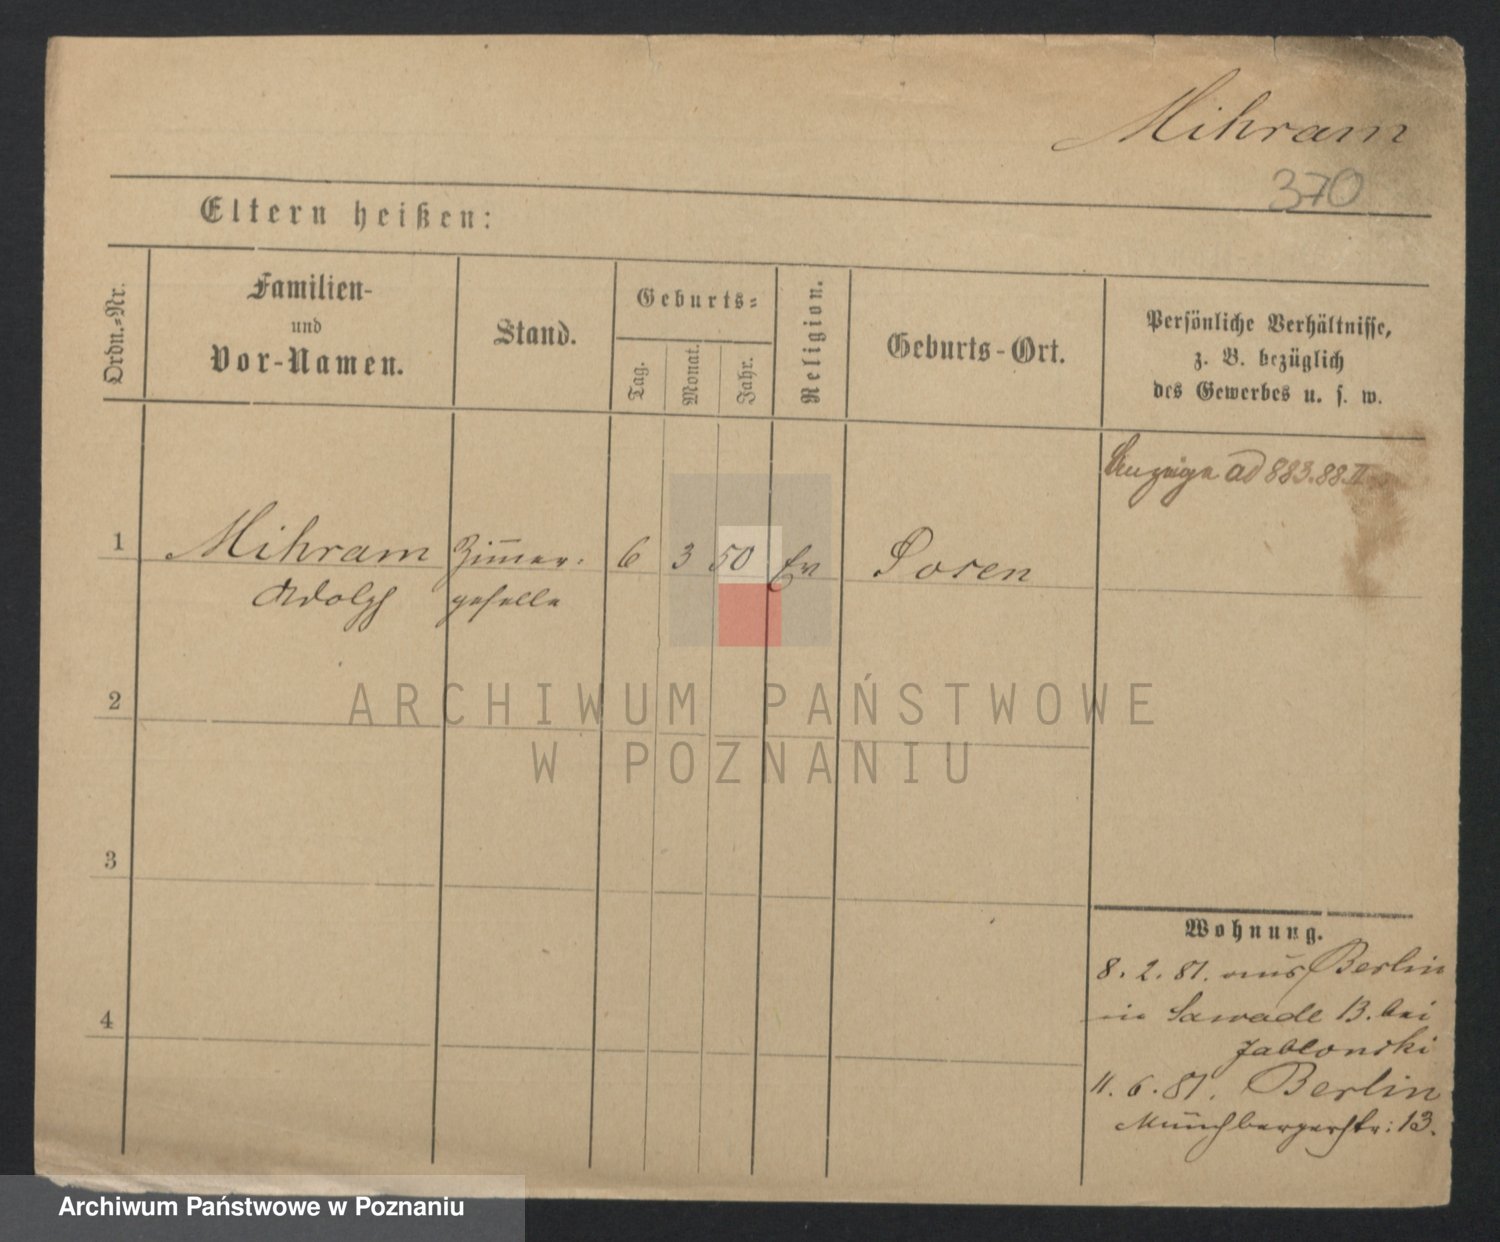 Mihram
370
Eltern heißen:
Ordn.-Nr.
Familien-
und
Vor-Namen.
Stand.
Geburts-
Tag.
Monat.
Jahr.
Religion.
Geburts-Ort.
Persönliche Verhältnisse,
z. B. bezüglich
des Gewerbes u. s. w.
Anzeige ad 883.88.II
1 Mihram Zimmer- 6 3 50 Ev Posen
Adolph geselle
2
3
4
Wohnung.
8. 2. 81. aus Berlin
in Sawade 13. bei
Jablonski
11. 6. 81. Berlin
Münchbergerstr: 13.
ARCHIWUM PAŃSTWOWE
W POZNANIU
Archiwum Państwowe w Poznaniu